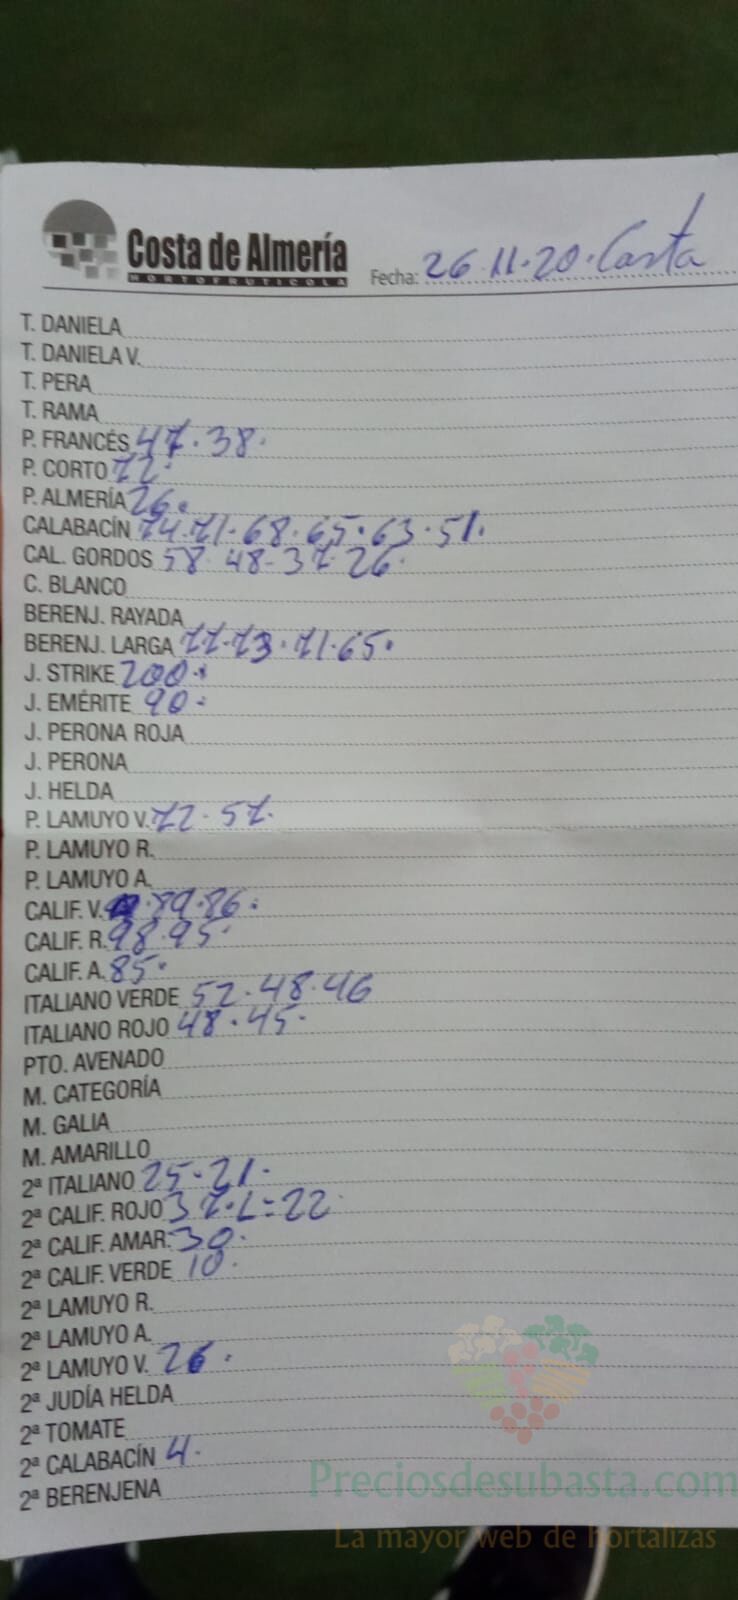 Costa de Almería
HORTOFRUTICOLA
Fecha: 26.11.20. Costa
T. DANIELA
T. DANIELA V.
T. PERA
T. RAMA
P. FRANCÉS 47.38.
P. CORTO 72.
P. ALMERÍA 26.
CALABACÍN 74.71.68.65.63.51.
CAL. GORDOS 58.48-37.26.
C. BLANCO
BERENJ. RAYADA
BERENJ. LARGA 77.73.71.65.
J. STRIKE 200.
J. EMÉRITE 90.
J. PERONA ROJA
J. PERONA
J. HELDA
P. LAMUYO V. 72.57.
P. LAMUYO R.
P. LAMUYO A.
CALIF. V. .89.86.
CALIF. R. 98.95.
CALIF. A. 85.
ITALIANO VERDE 52.48.46
ITALIANO ROJO 48.45.
PTO. AVENADO
M. CATEGORÍA
M. GALIA
M. AMARILLO
2ª ITALIANO 25.21.
2ª CALIF. ROJO 37.L=22
2ª CALIF. AMAR. 30.
2ª CALIF. VERDE 10.
2ª LAMUYO R.
2ª LAMUYO A.
2ª LAMUYO V. 26.
2ª JUDÍA HELDA
2ª TOMATE
2ª CALABACÍN 4.
2ª BERENJENA
Preciosdesubasta.com
La mayor web de hortalizas